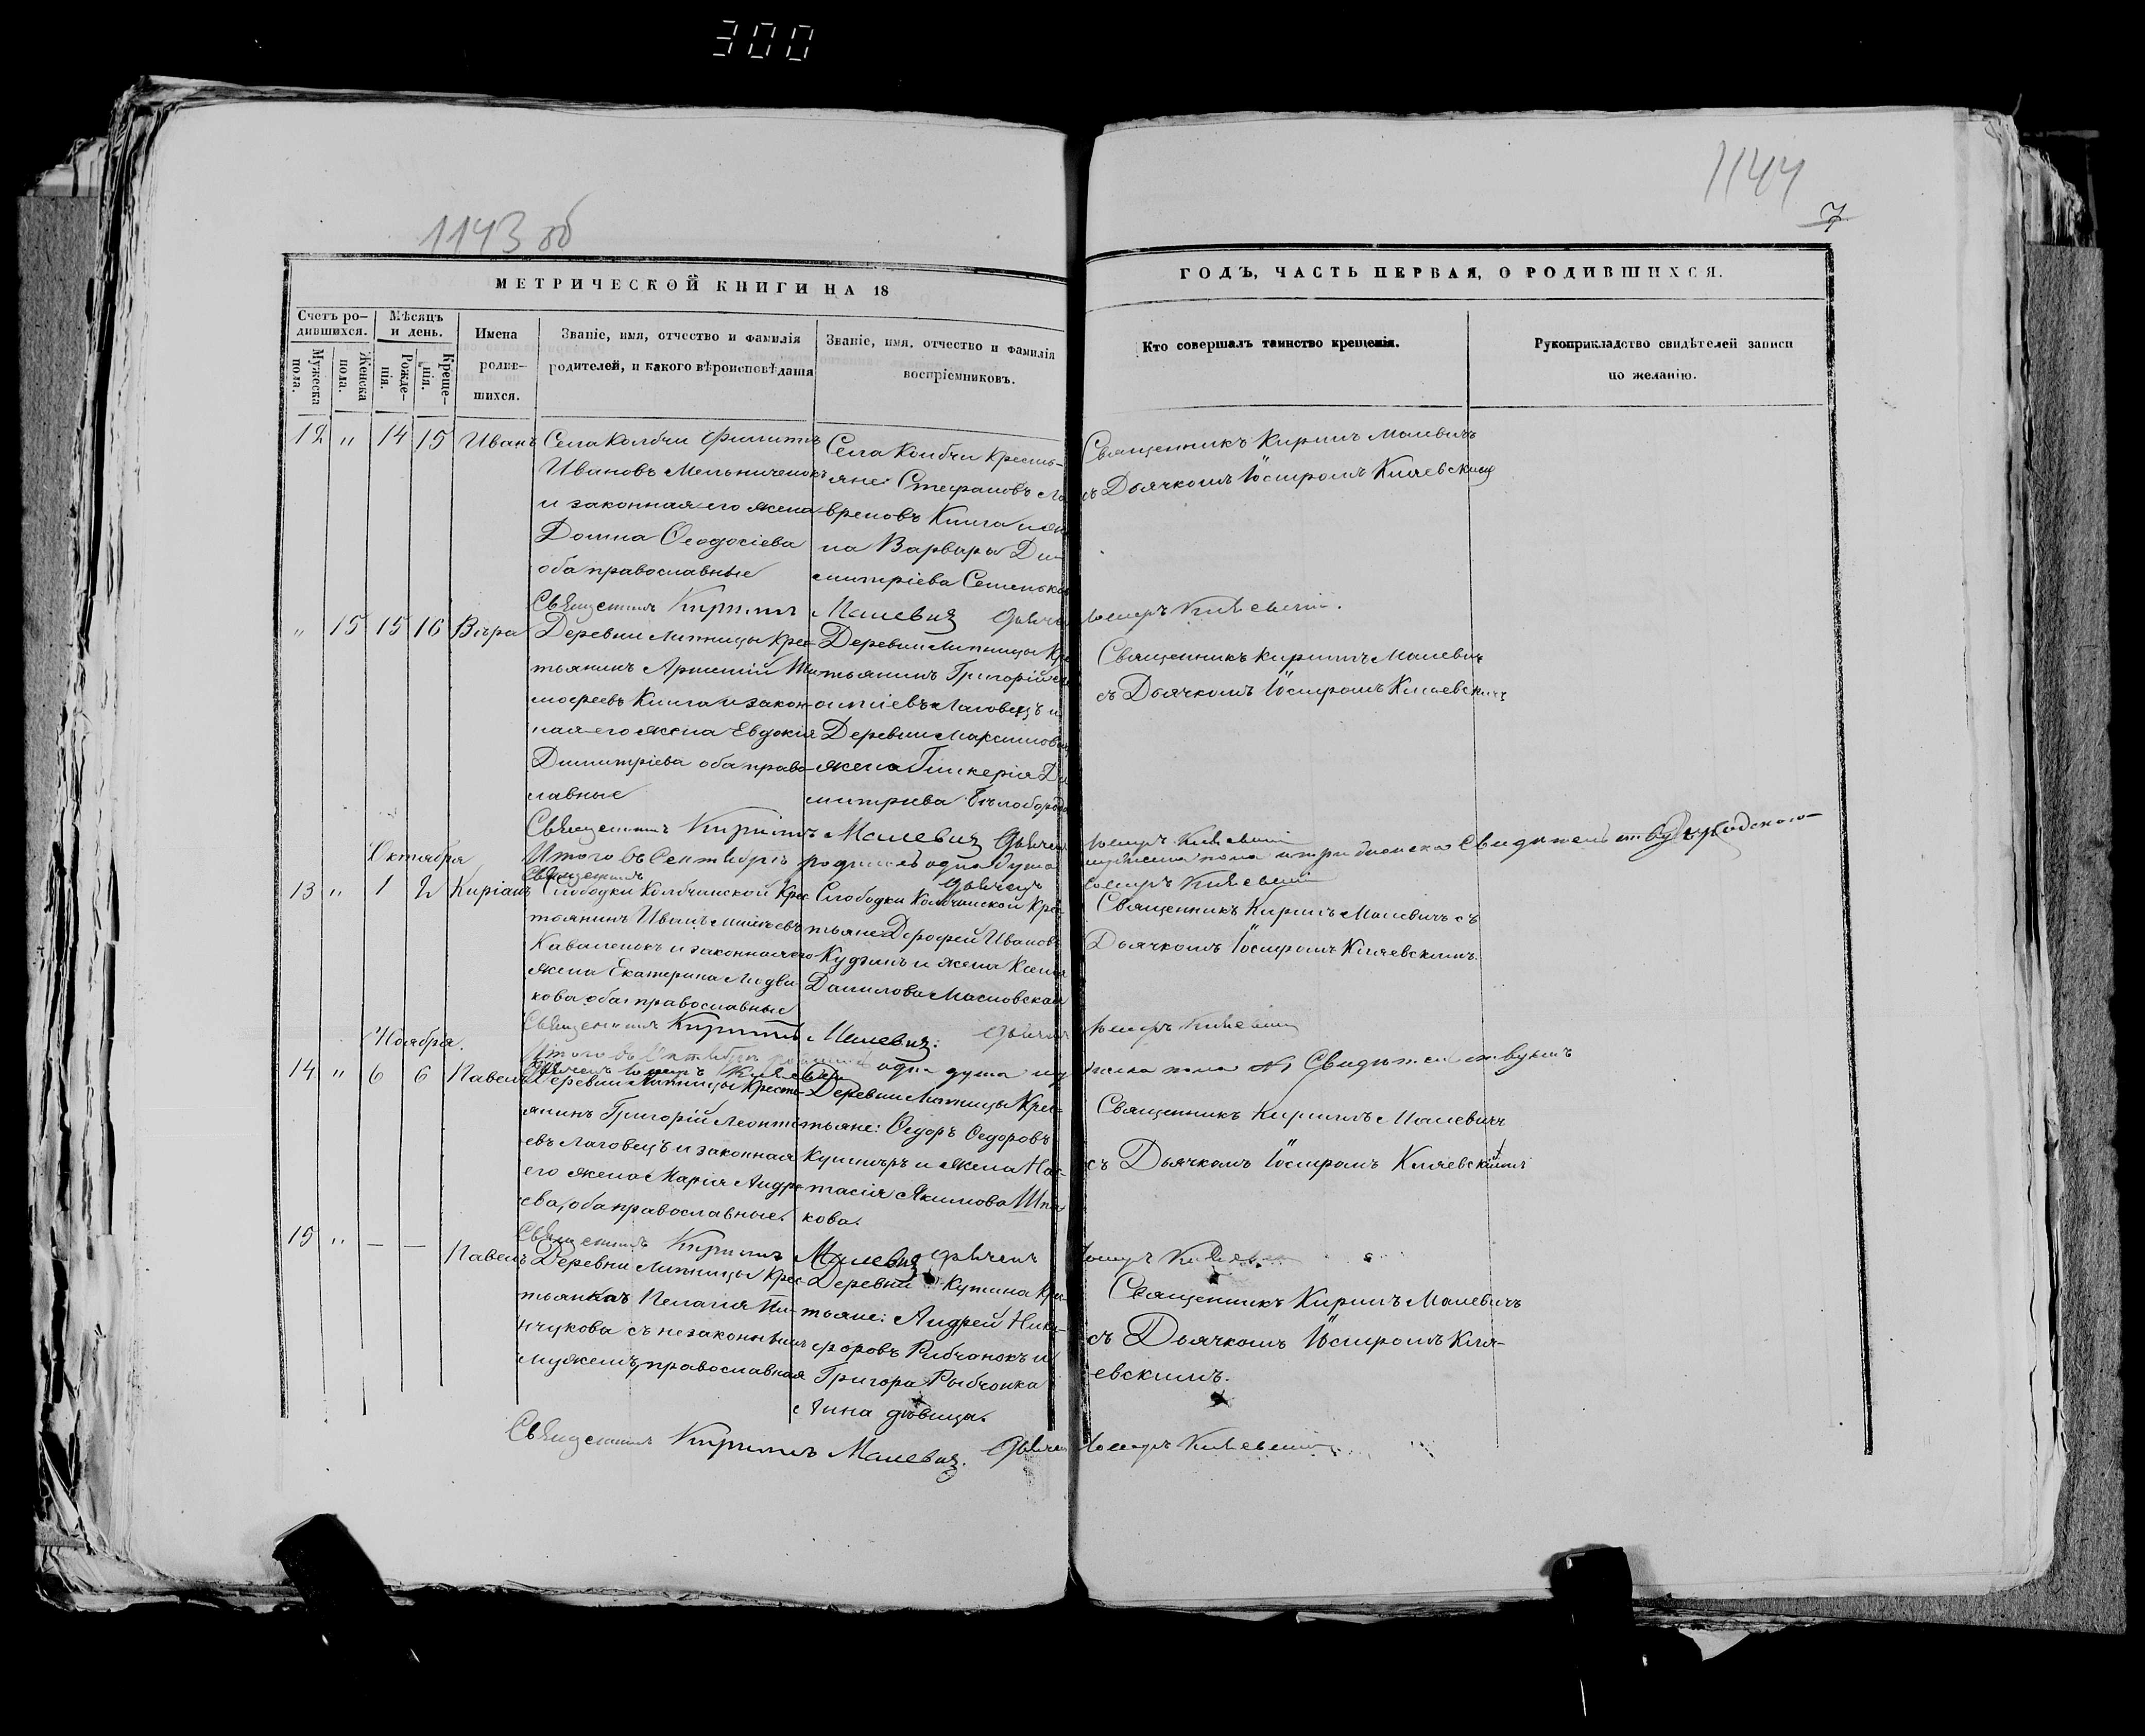 300
1143 об
1144
7
МЕТРИЧЕСКОЙ КНИГИ НА 18
ГОДЪ, ЧАСТЬ ПЕРВАЯ, О РОДИВШИХСЯ.
Счетъ ро-
дившихся.
Мужеска
пола.
Женска
пола.
Мѣсяцъ
и день.
Рожде-
нія.
Креще-
нія.
Имена
родив-
шихся.
Званіе, имя, отчество и фамилія
родителей, и какого вѣроисповѣданія
Званіе, имя, отчество и фамилія
воспріемниковъ.
Кто совершалъ таинство крещенія.
Рукоприкладство свидѣтелей записи
по желанію.
12 " 14 15 Иванъ
Села Колбчи Филиппъ
Ивановъ Мельниченокъ
и законная его жена
Домна Ѳеодосіева
оба православные
Села Колбчи Кресть-
яне: Стефановъ Ла
вреновъ Книга и же
на Варвара Ди-
митріева
Священникъ Кирилъ Малевичъ
съ Дьячкомъ Іосифомъ Кляевским
Священникъ Кирилъ Малевичъ
" 15 15 16 Вѣра
Деревни Липницы Крес-
тьянинъ Арсеній Ти
мофеевъ Книга и закон-
ная его жена Евдокія
Димитріева оба право-
славные
Деревни Липницы Кре
тьянинъ Григорій Ле
онтіевъ Лаговецъ и
Деревни
жена Гликерія Ди
митріева Бѣлобород
Священникъ Кирилъ Малевичъ
съ Дьячкомъ Іосифомъ Кляевским
Священникъ Кирилъ Малевичъ
Октября
Итого въ Сентябрѣ родилось одна душа
13 " 1 2 Киріанъ
Слободки Колбчанской Крес-
тьянинъ Иванъ
Коваленокъ и законная его
жена Екатерина Людви-
кова оба православные
Слободки Колбчанской Крес-
тьяне Дорофей Ивановъ
Кудзинъ и жена Ксенія
Данилова Масловская
Священникъ Кирилъ Малевичъ съ
Дьячкомъ Іосифомъ Кляевскимъ.
Священникъ Кирилъ Малевичъ
Ноября.
Итого въ Октябрѣ одна душа
14 " 6 6 Павелъ
Деревни Липницы Кресть-
янинъ Григорій Леонть
евъ Лаговецъ и законная
его жена Марія Андре
ева, оба православные.
Деревни Липницы Крес-
тьяне: Ѳедоръ Ѳедоровъ
Кушнѣръ и жена Нас-
тасія Якимова Шпа
кова.
Священникъ Кирилъ Малевичъ
съ Дьячкомъ Іосифомъ Кляевскимъ
Священникъ Кирилъ Малевичъ
15 " — — Павелъ
Деревни Липницы Крес-
тьянка Пелагія
съ незаконнымъ
мужемъ, православная
Деревни Купина Кре
тьяне: Андрей Ники-
форовъ Рыбчонокъ и
Григора Рыбчонка
Анна дѣвица.
Священникъ Кирилъ Малевичъ
съ Дьячкомъ Іосифомъ Кля-
евскимъ.
Священникъ Кирилъ Малевичъ.